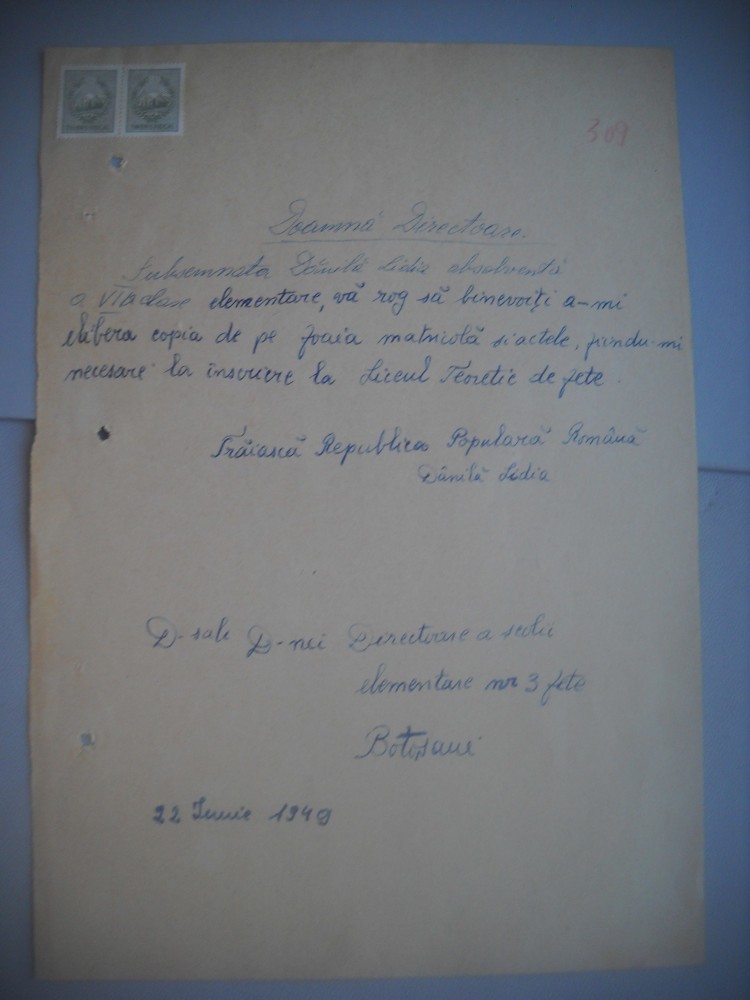 309
Doamnă Directoare.
Subsemnata Dănilă Lidia absolventă
a clase elementare, vă rog să binevoiți a-mi
elibera copia de pe foaia matricolă si actele, fiindu-mi
necesare la înscriere la Liceul Teoretic de fete.
Trăiască Republica Populară Română
Dănilă Lidia
D-sale D-nei Directoare a scolii
elementare nr 3 fete
Botoșani
22 Iunie 1949